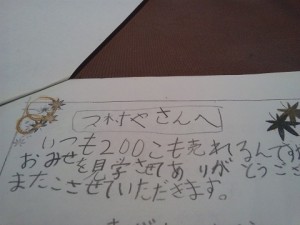 つかやさんへ
いつも200こも売れるんですね
おみせを見学させてありがとうござ
またこさせていただきます。